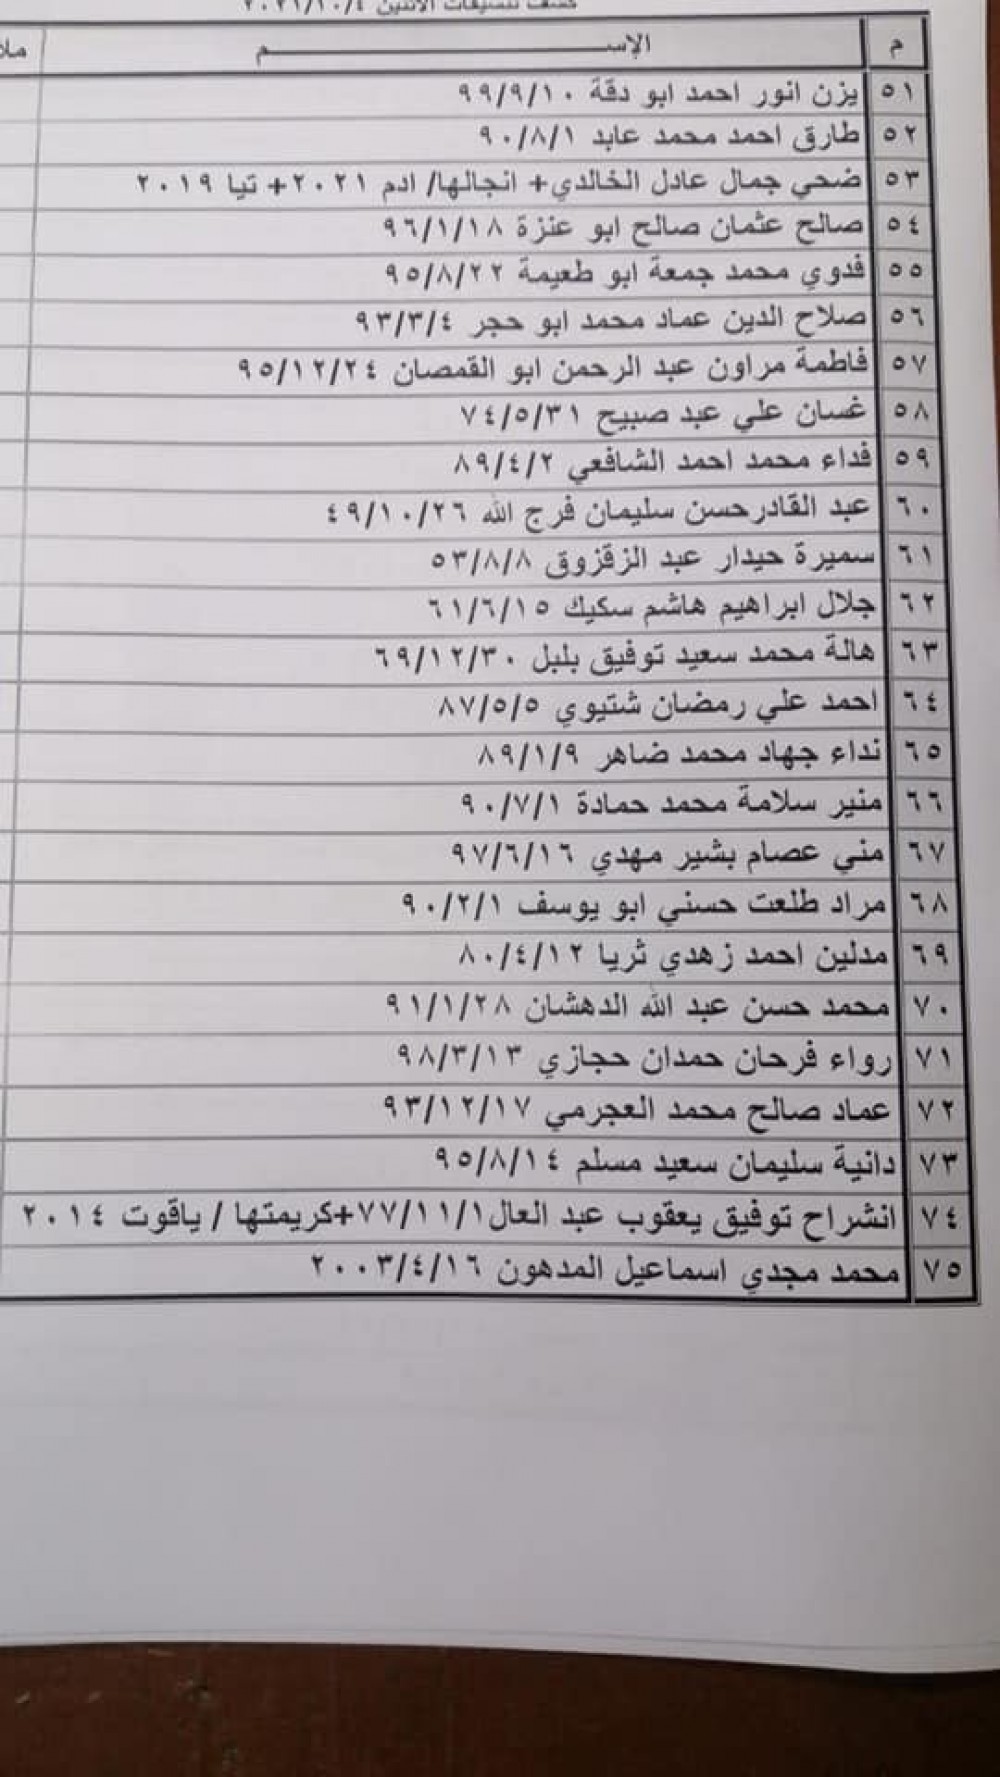 كشف تنسيقات الاثنين ٢٠٢١/١٠/٤
م الإســـــــــــــــم ملا
٥١ يزن انور احمد ابو دقة ٩٩/٩/١٠
٥٢ طارق احمد محمد عابد ٩٠/٨/١
٥٣ ضحي جمال عادل الخالدي+ انجالها/ ادم ٢٠٢١+ تيا ٢٠١٩
٥٤ صالح عثمان صالح ابو عنزة ٩٦/١/١٨
٥٥ فدوي محمد جمعة ابو طعيمة ٩٥/٨/٢٢
٥٦ صلاح الدين عماد محمد ابو حجر ٩٣/٣/٤
٥٧ فاطمة مراون عبد الرحمن ابو القمصان ٩٥/١٢/٢٤
٥٨ غسان علي عبد صبيح ٧٤/٥/٣١
٥٩ فداء محمد احمد الشافعي ٨٩/٤/٢
٦٠ عبد القادرحسن سليمان فرج الله ٤٩/١٠/٢٦
٦١ سميرة حيدار عبد الزقزوق ٥٣/٨/٨
٦٢ جلال ابراهيم هاشم سكيك ٦١/٦/١٥
٦٣ هالة محمد سعيد توفيق بلبل ٦٩/١٢/٣٠
٦٤ احمد علي رمضان شتيوي ٨٧/٥/٥
٦٥ نداء جهاد محمد ضاهر ٨٩/١/٩
٦٦ منير سلامة محمد حمادة ٩٠/٧/١
٦٧ مني عصام بشير مهدي ٩٧/٦/١٦
٦٨ مراد طلعت حسني ابو يوسف ٩٠/٢/١
٦٩ مدلين احمد زهدي ثريا ٨٠/٤/١٢
٧٠ محمد حسن عبد الله الدهشان ٩١/١/٢٨
٧١ رواء فرحان حمدان حجازي ٩٨/٣/١٣
٧٢ عماد صالح محمد العجرمي ٩٣/١٢/١٧
٧٣ دانية سليمان سعيد مسلم ٩٥/٨/١٤
٧٤ انشراح توفيق يعقوب عبد العال٧٧/١١/١+كريمتها / ياقوت ٢٠١٤
٧٥ محمد مجدي اسماعيل المدهون ٢٠٠٣/٤/١٦